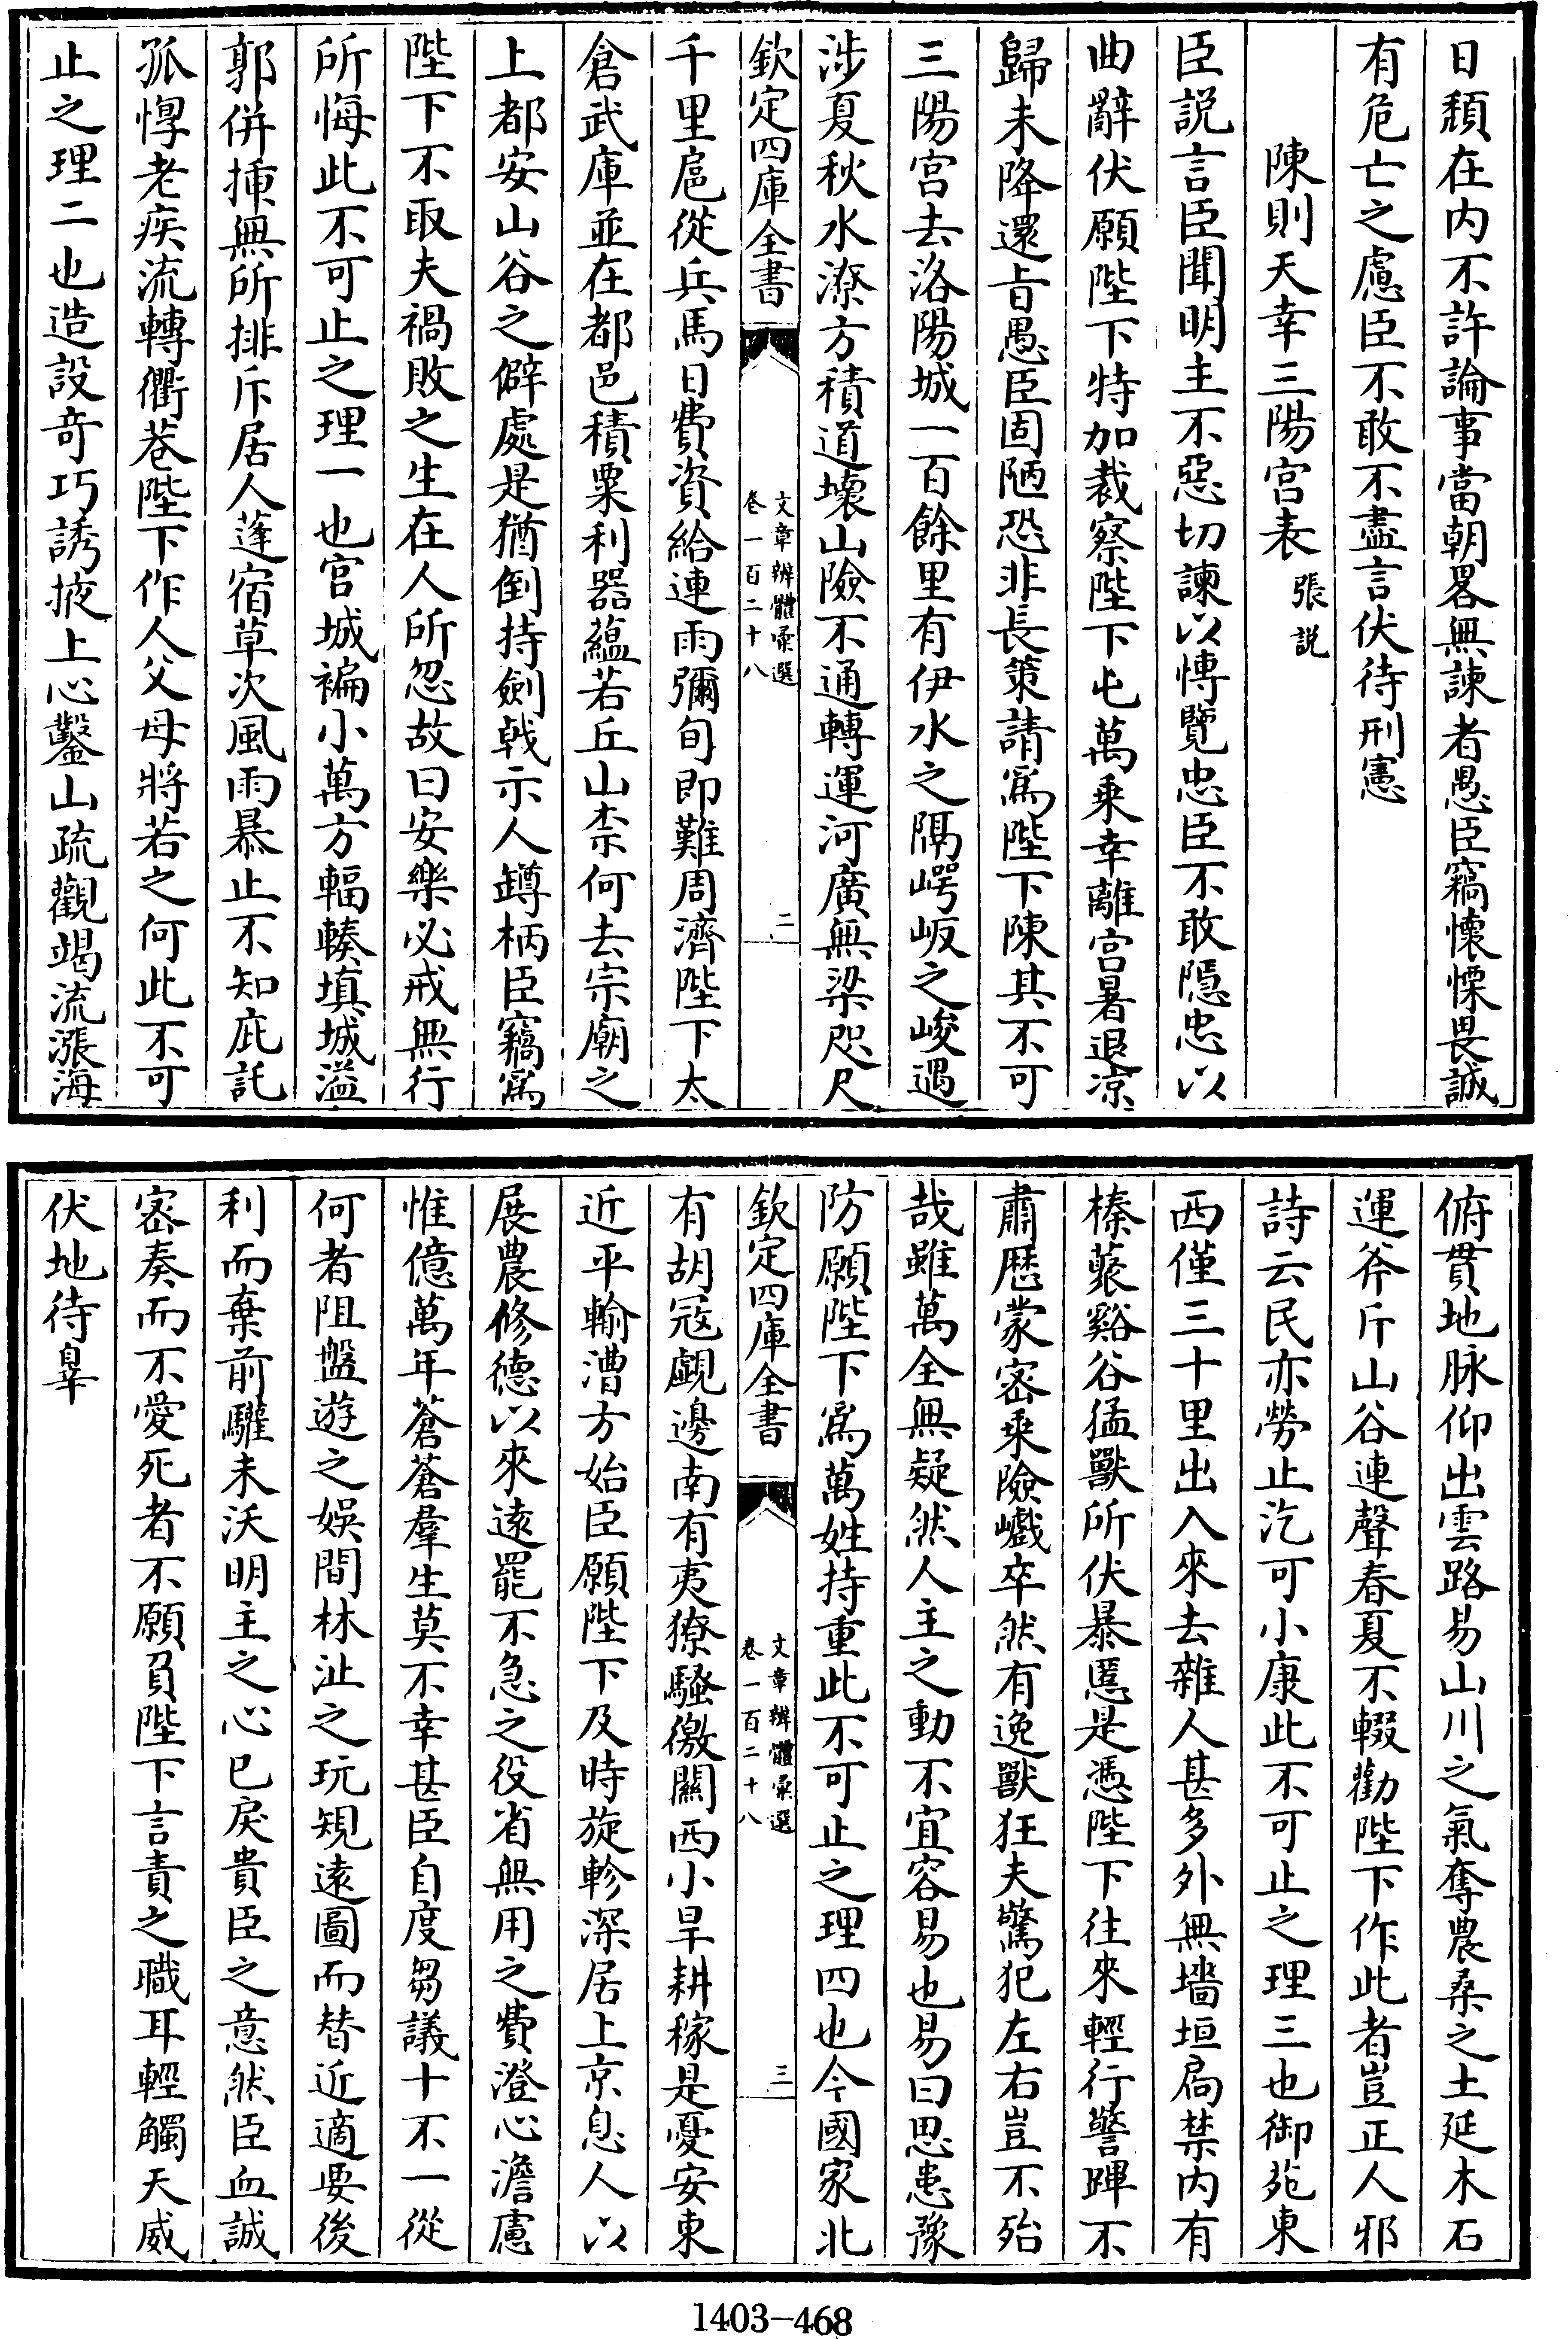 日頽在内不許論事當朝畧無諫者愚臣竊懷慄畏誠
有危亡之慮臣不敢不盡言伏待刑憲
陳則天幸三陽宫表 張説
臣説言臣聞明主不惡切諫以愽覽忠臣不敢隱忠以
曲辭伏願陛下特加裁察陛下屯萬乗幸離宫暑退凉
歸未降還㫖愚臣固陋恐非長策請為陛下陳其不可
三陽宫去洛陽城一百餘里有伊水之隔崿岅之峻過
涉夏秋水潦方積道壊山險不通轉運河廣無梁咫尺
欽定四庫全書
文章辨體彚選
卷一百二十八
二
千里扈從兵馬日費資給連雨彌旬即難周濟陛下太
倉武庫並在都邑積粟利器蘊若丘山柰何去宗廟之
上都安山谷之僻處是猶倒持劍㦸示人鐏柄臣竊為
陛下不取夫禍敗之生在人所忽故曰安樂必戒無行
所悔此不可止之理一也宫城褊小萬方輻輳填城溢
郭併揷無所排斥居人蓬宿草次風雨暴止不知庇託
孤惸老疾流轉衢巷陛下作人父母將若之何此不可
止之理二也造設奇巧誘掖上心鑿山疏觀竭流漲海
俯貫地脉仰出雲路易山川之氣奪農桑之土延木石
運斧斤山谷連聲春夏不輟勸陛下作此者豈正人邪
詩云民亦勞止汔可小康此不可止之理三也御苑東
西僅三十里出入來去雜人甚多外無墻垣扃禁内有
榛藂谿谷猛獸所伏暴慝是憑陛下往來輕行警蹕不
肅歴蒙宻乗險巇卒然有逸獸狂夫驚犯左右豈不殆
哉雖萬全無疑然人主之動不宜容易也易曰思患豫
防願陛下為萬姓持重此不可止之理四也今國家北
欽定四庫全書
文章辨體彚選
卷一百二十八
三
有胡冦覷邊南有夷獠騷徼關西小旱耕稼是憂安東
近平輸漕方始臣願陛下及時旋軫深居上京息人以
展農修德以來逺罷不急之役省無用之費澄心澹慮
惟億萬年蒼蒼羣生莫不幸甚臣自度芻議十不一從
何者阻盤遊之娛間林沚之玩規逺圖而替近適要後
利而棄前驩未沃明主之心已戾貴臣之意然臣血誠
宻奏而不愛死者不願負陛下言責之職耳輕觸天威
伏地待辠
1403-468